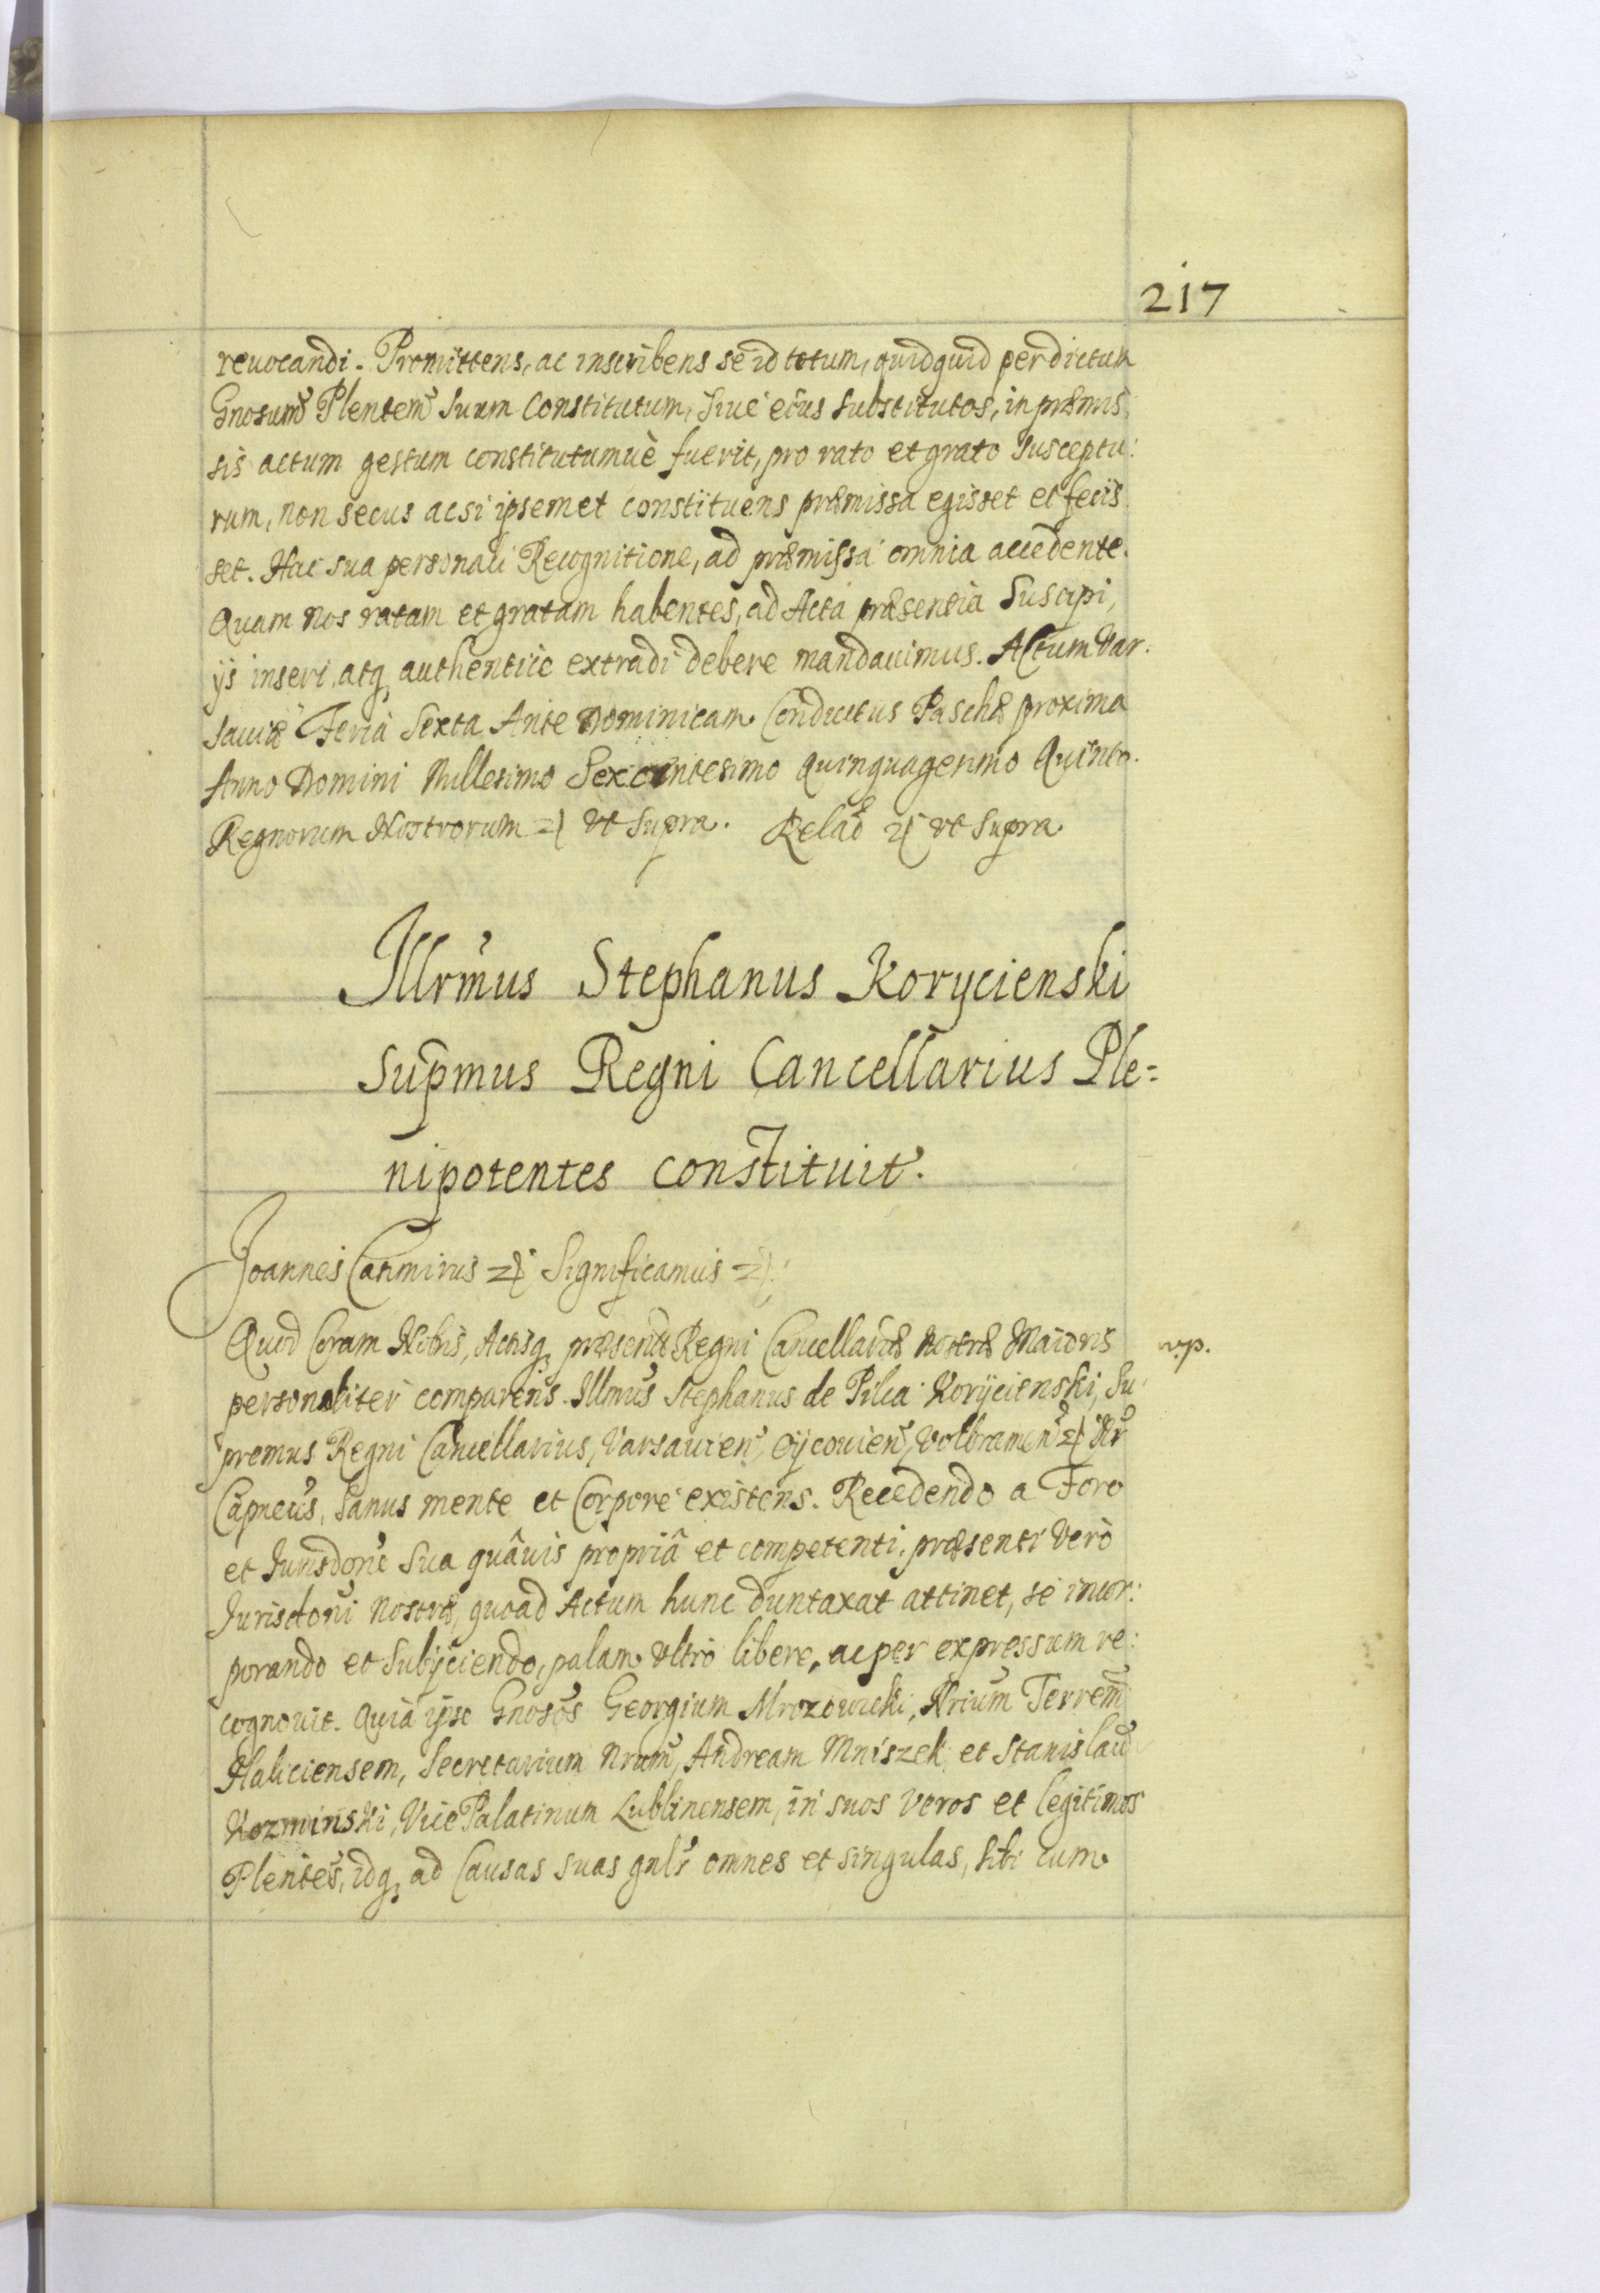 217
reuocandi. Promittens, ac inscribens se id totum, quidquid per dictum
Gnosum Plentem suum Constitutum, siue eius substitutos, in præmis
sis actum gestum constitutumuè fuerit, pro rato et grato susceptu:
rum, non secus acsi ipsemet constituens præmissa egisset et fecis
set. Hac sua personali Recognitione, ad præmissa omnia accedente.
Quam nos ratam et gratam habentes, ad Acta præsentia Suscipi,
ijs inseri, atq authentice extradi debere mandauimus. Actum Var:
sauiæ Feria Sexta Ante Dominicam Conductus Paschæ proxima
Anno Domini Millesimo Sexcentesimo Quinquagesimo Quinto.
Regnorum Nostrorum etc vt supra. Relao etc vt supra
Illrmus Stephanus Korycienski
Supmus Regni Cancellarius Ple=
nipotentes constituit.
Joannes Casimirus etc Significamus etc:
Quod Coram Nobis, Actisq præsent Regni Cancellariæ Nostræ Maioris
personaliter comparens Illmus Stephanus de Pilca Korycienski, Su
premus Regni Cancellarius, Varsauien, Oycouien, Volbramen etc Nr
Capneus, sanus mente et Corpore existens. Recedendo a Foro
et Jurisdone sua quâuis propriâ et competenti, præsenti verò
Jurisdoni nostræ, quoad Actum hunc duntaxat attinet, se incor:
porando et subijciendo, palam vltrò libere, ac per expressum re:
cognouit. Quia ipse Gnosos Georgium Mrozowicki, Nrium Terrem
Haliciensem, Secretarium Nrum, Andream Mniszek et Stanislau
Kozminski, Vice Palatinum Lublinensem, in suos veros et legitimos
Plentes, idq ad Causas suas gnlr omnes et singulas, sibi cum